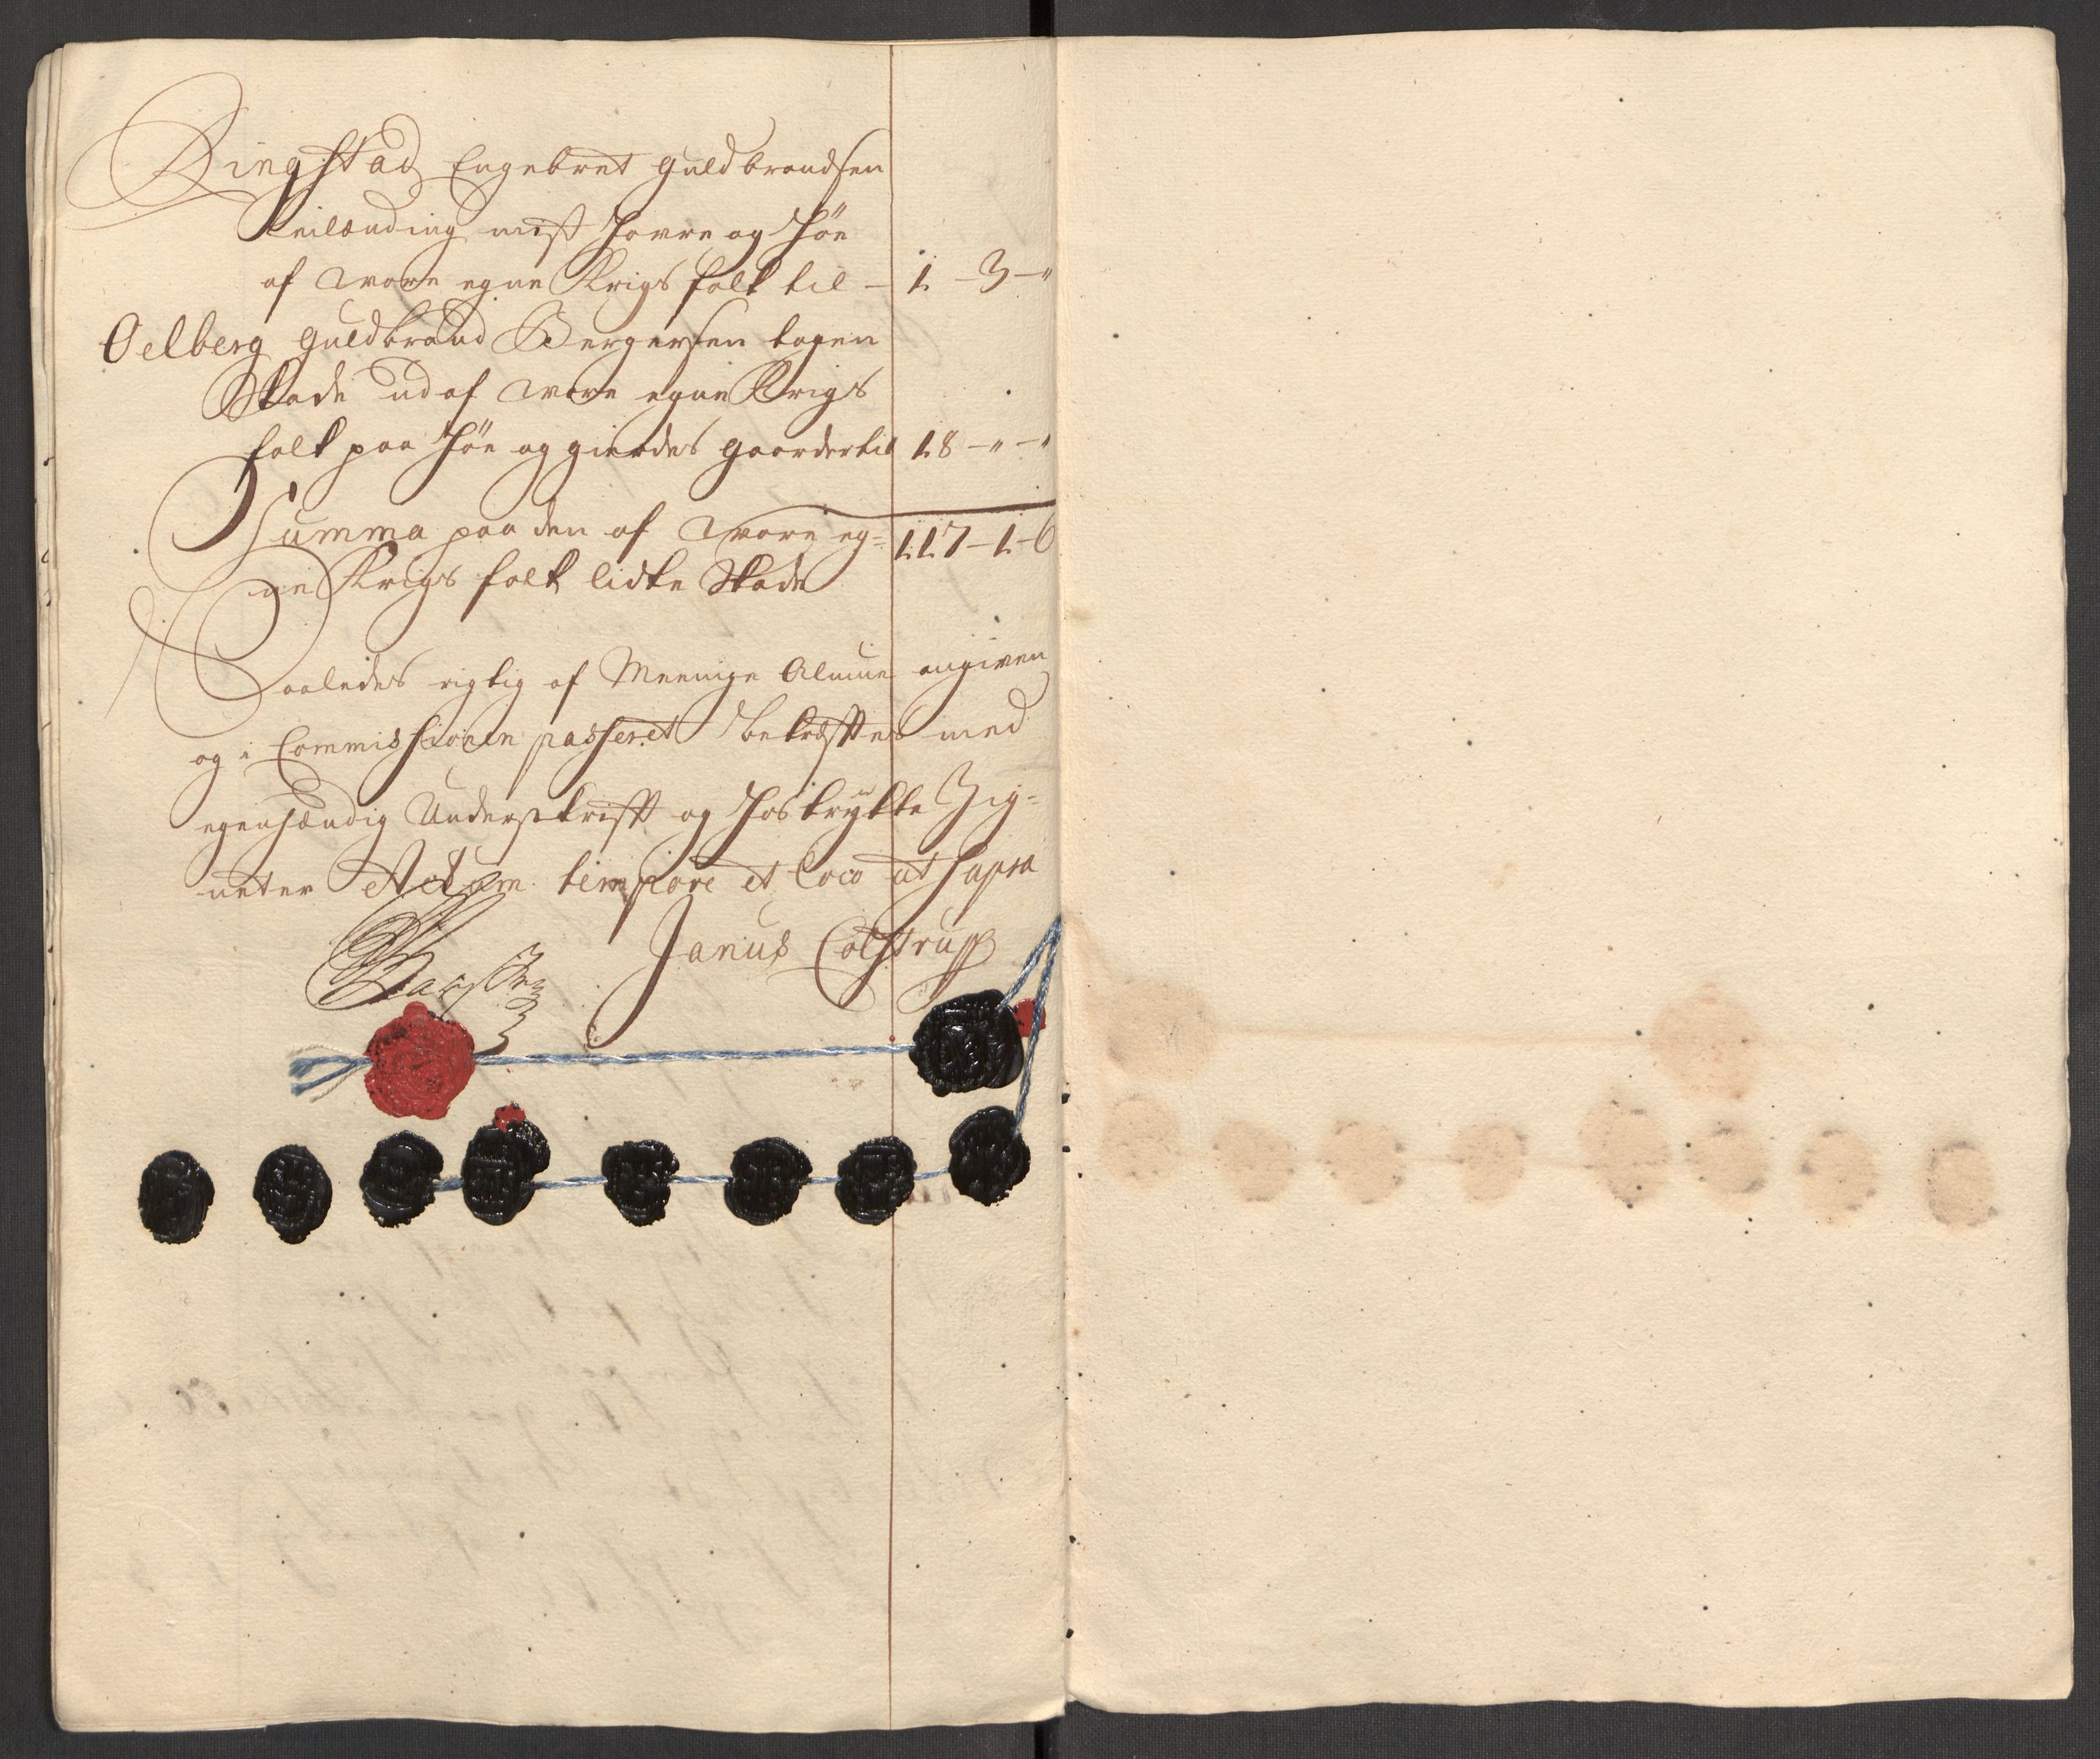 Ringstad Engebret Guldbrandsen
Leilænding mist Havre og Höe
af wore egne Krigs folk til – 1 – 3 – "
Oelberg Guldbrand Bergersen tagen
Skade ud af wore egne Krigs
folk paa Höe og gierdes gaarder til 18 – " – "
Summa paa den af wore eg= 117 – 1 – 6
ne Krigs folk lidte Skade
Saaledes rigtig af Meenige Almue angiven
og i Commissionen passeret bekræfftes med
egenhændig Underskrifft og hostrykte Zig=
neter Actum tempore et Loco ut supra
Janus Colstrup